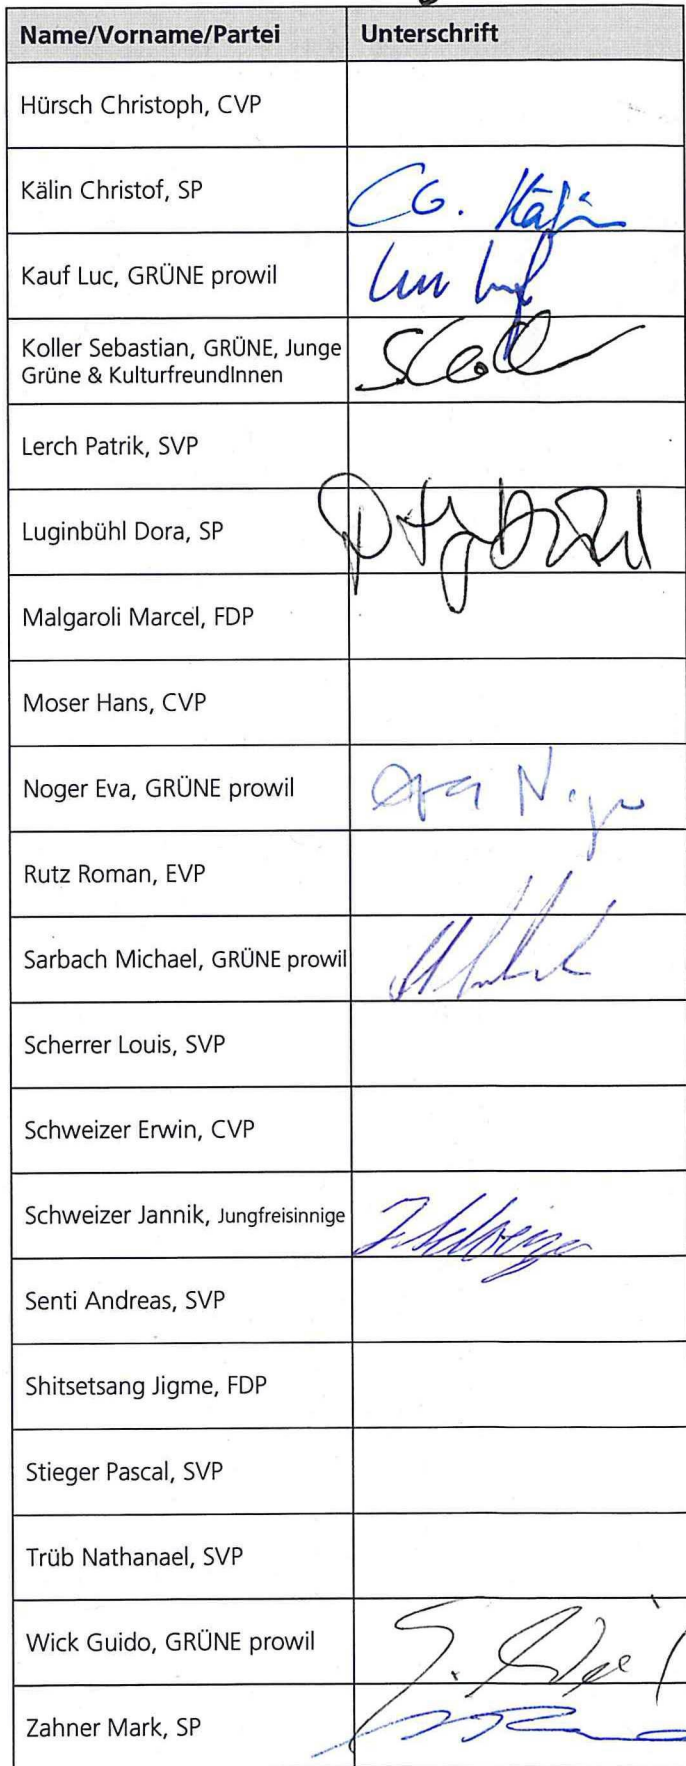 Name/Vorname/Partei Unterschrift
Hürsch Christoph, CVP
Kälin Christof, SP CG. Kälin
Kauf Luc, GRÜNE prowil
Koller Sebastian, GRÜNE, Junge
Grüne & KulturfreundInnen
Lerch Patrik, SVP
Luginbühl Dora, SP
Malgaroli Marcel, FDP
Moser Hans, CVP
Noger Eva, GRÜNE prowil Eva Noger
Rutz Roman, EVP
Sarbach Michael, GRÜNE prowil
Scherrer Louis, SVP
Schweizer Erwin, CVP
Schweizer Jannik, Jungfreisinnige J. Schweizer
Senti Andreas, SVP
Shitsetsang Jigme, FDP
Stieger Pascal, SVP
Trüb Nathanael, SVP
Wick Guido, GRÜNE prowil
Zahner Mark, SP